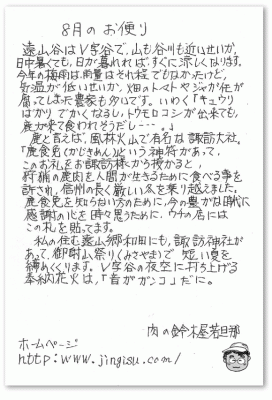 8月のお便り
遠山谷はV字谷で、山も谷川も近いせいか、
日中暑くても、日が暮れれば、すぐに涼しくなります。
今年の梅雨は、雨量はそれ程でもなかったけど、
気温が低いせいか、畑のトマトやジャガ芋が
腐ってしまった農家も多いです。いわく「キュウリ
ばかりでかくなるし、トウモロコシが出来ても、
鹿が来て食われそうだし…。」
鹿と言えば、風林火山で有名な諏訪大社。
「鹿食免(かじきめん)」という神符があって、
このお札をお諏訪様から授かると、
狩猟の鹿肉を人間が生きるために食べる事を
許され、信州の長く厳しい冬を乗り越えました。
鹿食免を知らない方のために、今の豊かな時代に
感謝の心を時々思うために、ウチの店には
この札を貼ってます。
私の住む遠山郷和田にも、諏訪神社が
あって、御射山祭り(みさやま)で短い夏を
締めくくります。V字谷の夜空に打ち上げる
奉納花火は、「音がガンコ」だに。
肉の鈴木屋若旦那
ホームページ
http://www.jingisu.com/